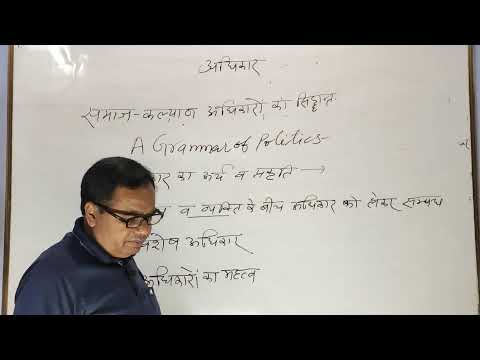 अधिकार
समाज-कल्याण अधिकारों का सिद्धान्त
A Grammar of Politics
का अर्थ व प्रकृति →
व व्यक्ति के बीच अधिकार को लेकर सम्बन्ध
अधिकार
अधिकारों का महत्व